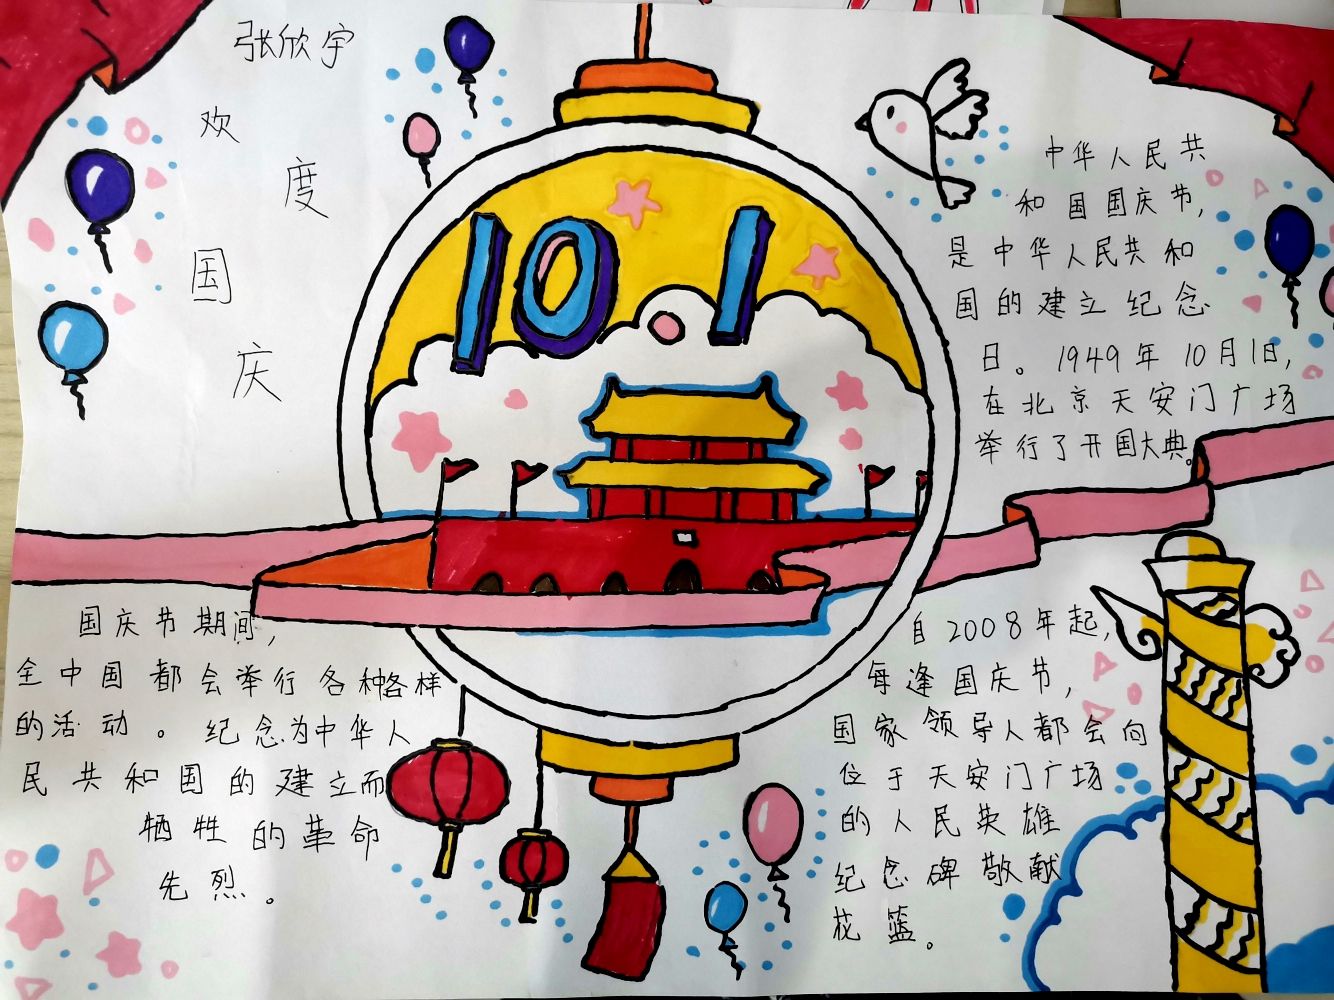 张欣宇
欢
度
国
庆
10.1
中华人民共
和国国庆节,
是中华人民共和
国的建立纪念
日。1949年10月1日,
在北京天安门广场
举行了开国大典。
国庆节期间,
全中国都会举行各种各样
的活动。纪念为中华人
民共和国的建立而
牺牲的革命
先烈。
自2008年起,
每逢国庆节,
国家领导人都会向
位于天安门广场
的人民英雄
纪念碑敬献
花篮。